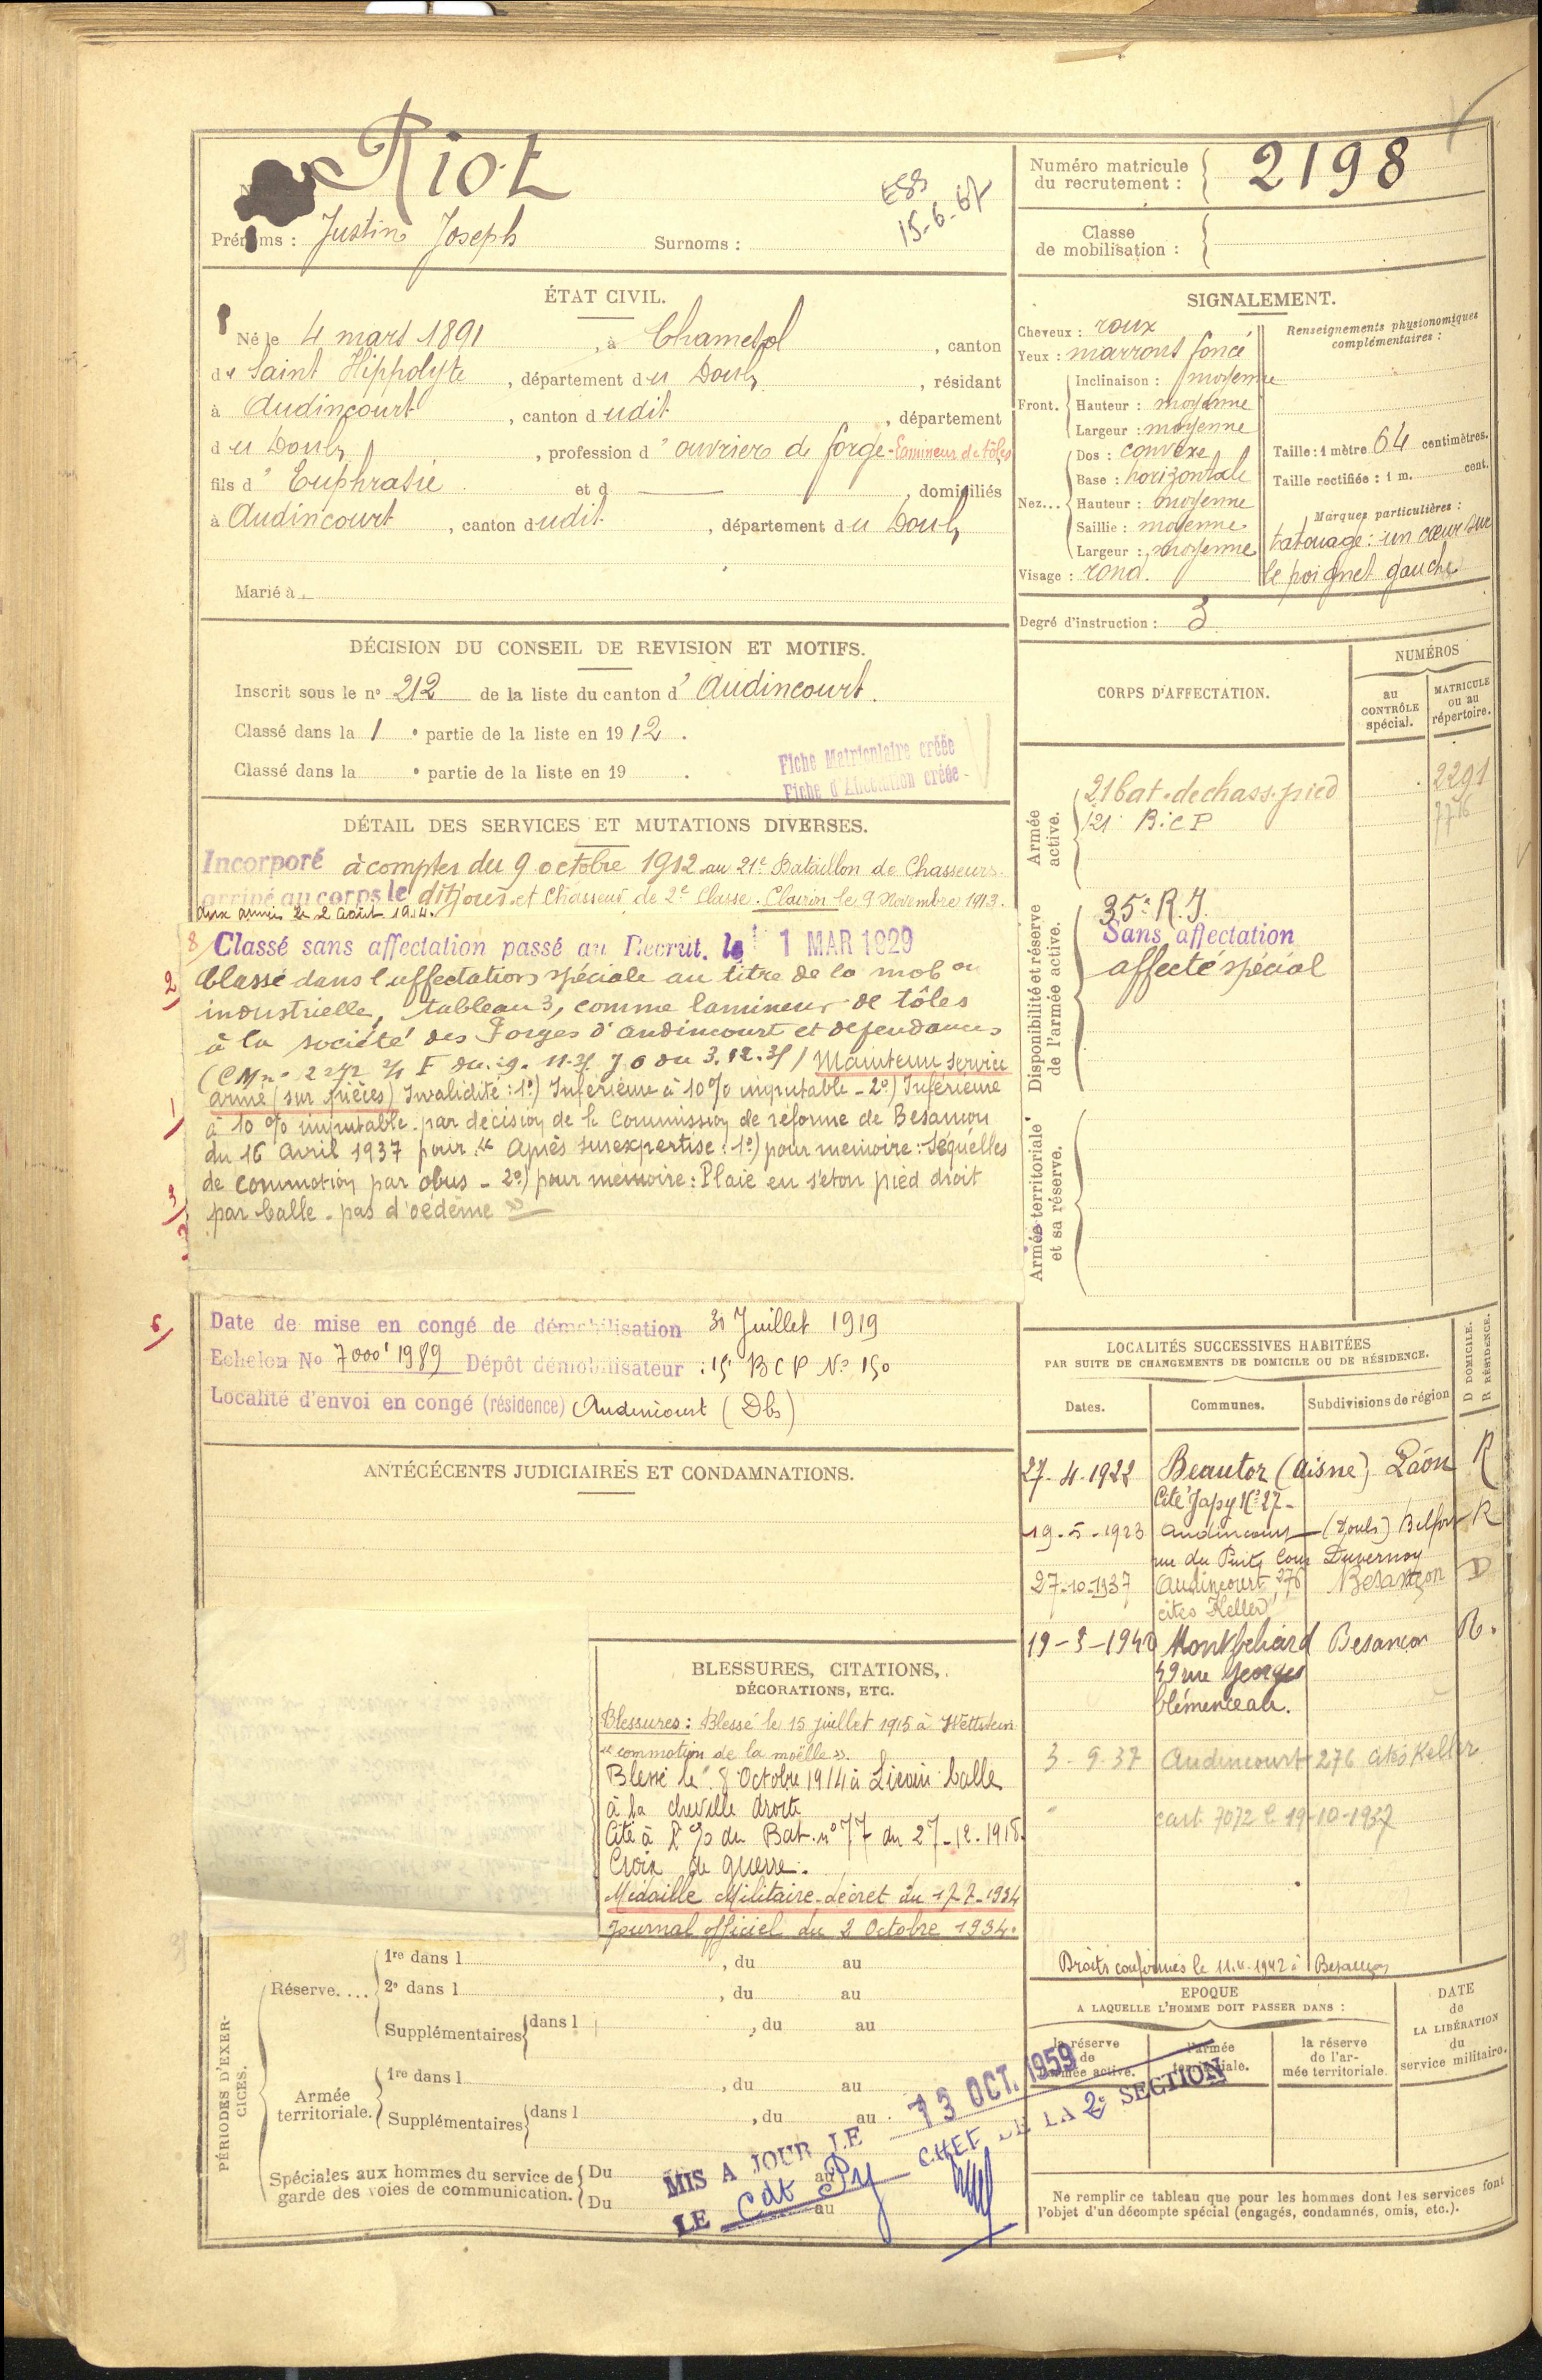 Riot
ESS
15-6-67
Prénoms : Justin Joseph Surnoms :
Numéro matricule
du recrutement : 2198
Classe
de mobilisation :
ÉTAT CIVIL.
Né le 4 mars 1891, à Chamesol, canton
de Saint Hippolyte, département du Doubs, résidant
à Audincourt, canton dudit, département
du Doubs, profession d'ouvrier de forge - Lamineur de tôles
fils d'Euphrasie et d — , domiciliés
à Audincourt, canton dudit, département du Doubs
Marié à
SIGNALEMENT.
Cheveux : roux
Yeux : marrons foncé
Front. Inclinaison : moyenne
Hauteur : moyenne
Largeur : moyenne
Nez... Dos : convexe
Base : horizontale
Hauteur : moyenne
Saillie : moyenne
Largeur : moyenne
Visage : rond.
Renseignements physionomiques
complémentaires :
Taille : 1 mètre 64 centimètres.
Taille rectifiée : 1 m. cent.
Marques particulières :
tatouage : un cœur sur
le poignet gauche
Degré d'instruction : 3
DÉCISION DU CONSEIL DE REVISION ET MOTIFS.
Inscrit sous le n° 212 de la liste du canton d'Audincourt.
Classé dans la 1 e partie de la liste en 1912.
Classé dans la e partie de la liste en 19 .
Fiche Matriculaire créée
Fiche d'Affectation créée -
DÉTAIL DES SERVICES ET MUTATIONS DIVERSES.
Incorporé à compter du 9 octobre 1912 au 21e Bataillon de Chasseurs
arrivé au corps le dit jour et Chasseur de 2e Classe. Clairon le 9 Novembre 1913.
aux armées le 2 août 1914.
8/ Classé sans affectation passé au Recrut. le 1 MAR 1929
2/ Classé dans l'affectation spéciale au titre de la mobon
industrielle, tableau 3, comme lamineur de tôles
à la société des Forges d'Audincourt et dependances
Maintenu service
armé (sur pièces) Invalidité : 1°) Inférieure à 10% imputable - 2°) Inférieure
1/ à 10 % imputable. par décision de la Commission de réforme de Besançon
du 16 Avril 1937 pour " Après surexpertise : 1°) pour mémoire : Séquelles
de commotion par obus - 2°) pour mémoire : Plaie en séton pied droit
3/ par balle - pas d'oédème "
6/ Date de mise en congé de démobilisation 31 Juillet 1919
Echelon No 7000' 1989 Dépôt démobilisateur : 15 BCP No 150
Localité d'envoi en congé (résidence) Audincourt (Dbs)
ANTÉCÉCENTS JUDICIAIRES ET CONDAMNATIONS.
BLESSURES, CITATIONS,
DÉCORATIONS, ETC.
Blessures : Blessé le 15 juillet 1915 à Wettstein
"commotion de la moëlle".
Blessé le 8 Octobre 1914 à balle
à la cheville droite
Cité à l' o/o du Bat. n° 77 du 27-12-1918.
Croix de guerre.
Médaille Militaire - décret du 17-7-1934
Journal officiel du 2 Octobre 1934.
CORPS D'AFFECTATION.
NUMÉROS
au
CONTRÔLE
spécial.
MATRICULE
ou au
répertoire.
Armée
active.
21 bat. de chass. pied 2291
21 B.C.P
Disponibilité et réserve
de l'armée active.
35e R.I.
Sans affectation
affecté spécial
Armée territoriale
et sa réserve.
LOCALITÉS SUCCESSIVES HABITÉES
PAR SUITE DE CHANGEMENTS DE DOMICILE OU DE RÉSIDENCE.
D DOMICILE.
R RÉSIDENCE.
Dates. Communes. Subdivisions de région
27-4-1922 Beautor (Aisne) Laon R
Cité Japy N° 27-
19-5-1923 Audincourt (Doubs) Belfort R
rue du Puits Cour Duvernoy
27-10-1937 Audincourt, 276 Besançon D
cités Keller
19-3-1940 Montbéliard Besançon R.
59 rue Georges
Clémenceau.
3-9-37 Audincourt 276 cités Keller
cart. 7072 19-10-1937
Droits confirmés le 11.4.1942 à Besançon
EPOQUE
A LAQUELLE L'HOMME DOIT PASSER DANS :
la réserve
de
l'armée active.
l'armée
territoriale.
la réserve
de l'ar-
mée territoriale.
DATE
de
LA LIBÉRATION
du
service militaire.
Ne remplir ce tableau que pour les hommes dont les services font
l'objet d'un décompte spécial (engagés, condamnés, omis, etc.).
PÉRIODES D'EXER-
CICES.
Réserve.... 1re dans l , du au
2e dans l , du au
Supplémentaires dans l , du au
Armée
territoriale. 1re dans l , du au
Supplémentaires dans l , du au
Spéciales aux hommes du service de
garde des voies de communication.
Du au
Du au
MIS A JOUR LE 13 OCT. 1959
LE Cdt Py CHEF DE LA 2e SECTION